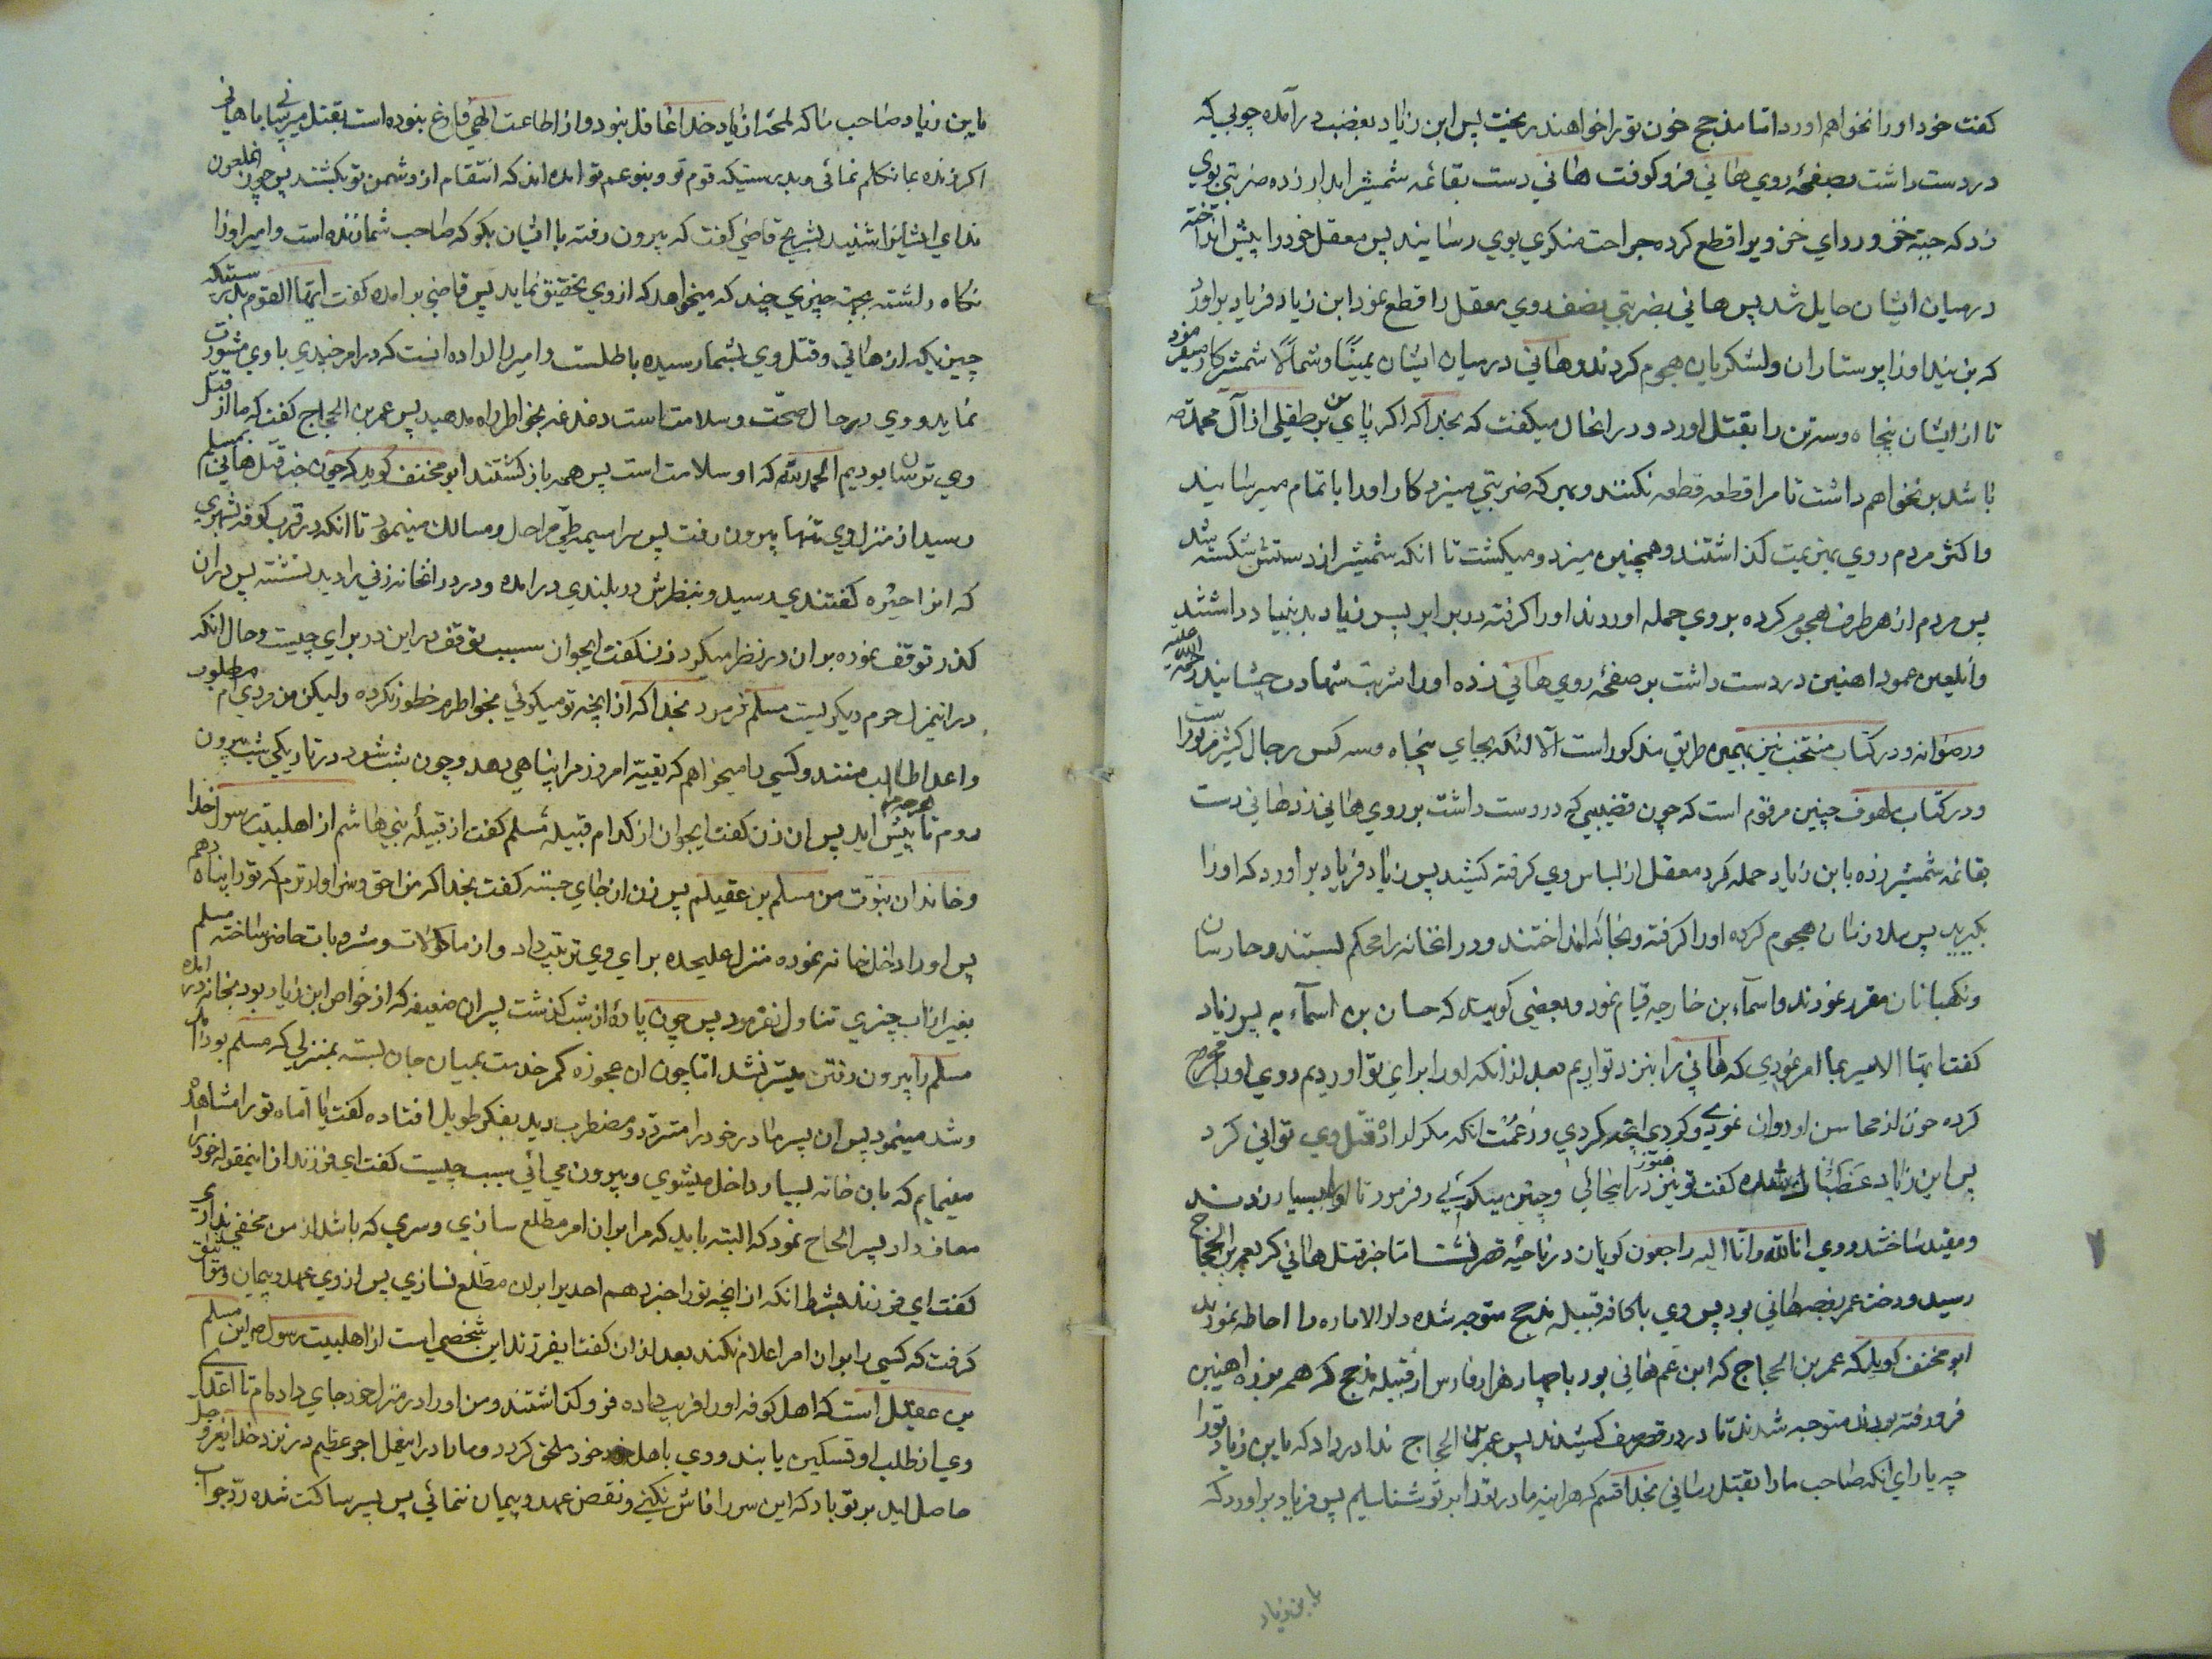 کفت خود اورا نخواهم اورد اما مذحج خون تو را خواهند ریخت پس ابن زیاد بغضب درآمده چوبی که
در دست داشت بصفحهٔ روی هانی فرو کوفت هانی دست بقائمه شمشیر ابدار زده ضربتی بوی
زد که جبه خز و ردای خز ویرا قطع کرده جراحت منکری بوی رسانید پس معقل خود را پیش انداخته
در میان ایشان حایل شد پس هانی بضربتی نصف روی معقل را قطع نمود ابن زیاد فریاد براورد
که بزنید اورا پرستاران ولشکریان هجوم کردند و هانی در میان ایشان یمینًا و شمالًا شمشیر کار میفرمود
تا از ایشان پنجاه وسه تن را بقتل اورد و در انحال میکفت که بخدا که اکر پای من بر طفلی از آل محمد ص
باشد بر نخواهم داشت تا مرا قطعه قطعه نکنند و بهر که ضربتی میزد کار او را باتمام میرسانید
و اکثر مردم روی بهزیمت کذاشتند و همچنین میزد و میکشت تا انکه شمشیر از دستش شکسته شد
پس مردم از هر طرف هجوم کرده بروی حمله اوردند اورا کرفته در برابر پسر زیاد بدبنیاد داشتند
و آنلعین عمود اهنین در دست داشت بر صفحهٔ روی هانی زده او را شربت شهادت چشانید رحمة الله علیه
و رضوانه و در کتاب منتخب نیز بهمین طریق مذکور است الّا انکه بجای پنجاه وسه کس رجال کثیر مزبورا ست
و در کتاب ملهوف چنین مرقوم است که چون قضیبی که در دست داشت بر روی هانی زد هانی دست
بقائمه شمشیر زده بابن زیاد حمله کرد معقل از لباس وی کرفته کشید پس زیاد فریاد براورد که اورا
بکیرید پس ملازمان هجوم کرده اورا کرفته و بخانهٔ انداختند و در انخانه را محکم بستند و حارسان
و نکهبانان مقرر نمودند و اسماء بن خارجه قیام نمود و بعضی کویند که حسان بن اسماء به پسر زیاد
کفت ایها الامیر بما امر نمودی که هانی را بنزد تو اریم بعد از انکه اورا برای تو اوردیم روی اورا مجروح
کرده خون از محاسن او روان نمودی و کردی انچه کردی و زعمت انکه مکر او را قتل وی توانی کرد
پس ابن زیاد غضبان شده کفت تو نیز هنوز در اینجائی و چنین میکوئی و فرمود تا او را بسیار زدند
و مقید ساختند و وی انا لله و انا الیه راجعون کویان در ناحیهٔ قصر نشست اما خبر قتل هانی که بعمرو بن الحجاج
رسید و دخت عمر بقصد هانی بود پس وی با کافه قبیله مذحج متوجه شده دار الاماره را احاطه نمودند
ابو مخنف کوید که عمر بن الحجاج که ابن عم هانی بود با چهار هزار فارس از قبیله مذحج که همه بزره اهنین
فرو رفته بودند متوجه شدند تا در در قصر صف کشیدند پس عمر بن الحجاج ندا در داد که یابن زیاد تو را
چه یارای انکه صاحب ما را بقتل رسانی بخدا قسم که هر اینه مادر تو را بر تو شناسیم پس فریاد براورد که
یا بن زیاد
یابن زیاد صاحب ما که لمحهٔ از یاد خدا غافل نبود و از اطاعت الهی فارغ نبوده است بقتل میرسانی یا هانی
اکر زنده عما تکلم نمائی و بدرستیکه قوم تو و بنو عم تو امده اند که انتقام از دشمن تو بکشند پس چون انملعون
ندای ایشانرا شنید بشریح قاضی کفت که بیرون رفته با ایشان بکو که صاحب شما زنده است و امیر اورا
نکاه داشته بجهة چیزی چند که میخواهد که از وی تحقیق نماید پس قاضی بر امده کفت ایها القوم بدرستیکه
چیزیکه از هانی و قتل وی بشما رسیده باطلست و امیر را اراده انست که در امر خیری با وی مشورت
نماید و وی در حال صحّت و سلامت است دغدغه بخواطر راه مدهید پس عمر بن الحجاج کفت که ما از قتل
وی ترسان بودیم الحمد لله که او سلامت است پس همه باز کشتند ابو مخنف کوید که چون خبر قتل هانی بمسلم
رسید از منزل وی تنها بیرون رفت پس سراسیمه طی مراحل و مسالک مینمود تا انکه در قرب کوفه بشهری
که انرا حیره کفتندی رسید و بنظرش در بلندی در امده و در در انخانه زنی را دید نشسته پس در ان
کذر توقف نموده بران در نظر میکرد زن کفت ایجوان سبب توقف در این در برای چیست و حال انکه
در اینمنزل حرم دیکر یست مسلم فرمود بخدا که از انچه تو میکوئی بخواطرم خطور نکرده ولیکن من مردی ام مطلوب
و اعدا طالب منند و کسی را میخواهم که بقیه امروز مرا پناهی بدهد و چون شب شود در تاریکی شب بیرون
روم تا هر چه پیش اید پس ان زن کفت ایجوان از کدام قبیلهٔ مسلم کفت از قبیلهٔ بنی هاشم از اهلبیت رسول خدا
و خاندان نبوّت من مسلم بن عقیلم پس زن از جای جسته کفت بخدا که من احق و سزاوارترم که تو را پناه دهم
پس اورا داخل خانه نموده منزل علیحده برای وی ترتیب داد و از ماکولات و مشروبات حاضر ساخته مسلم
بغیر از اب چیزی تناول نفرمود پس چون پارهٔ از شب کذشت پسر ان ضعیفه که از خواص ابن زیاد بود بخانه درامده
مسلم را بیرون رفتن میسّر نشد اما چون ان عجوزه کمر خدمت بمیان جان بسته بمنزلی که مسلم بود آمد
و شد مینمود پس ان پسر مادر خود را متردّد و مضطرب دید بفکر طویل افتاده کفت یا امّاه تو را مشاهده
مینمایم که بان خانه بسیار داخل میشوی و بیرون میائی سبب چیست کفت ای فرزند از اینمقوله خود را
معاف دار پسر الحاح نمود که البته باید که مرا بر ان امر مطلع سازی و سری که باشد از من مخفی نداری
کفت ای فرزند بشرط انکه از انچه تو را خبر دهم احدی را بران مطّلع نسازی پس از وی عهد و پیمان و میثاق
کرفت که کسی را بران امر اعلام نکند بعد از ان کفت ایفرزند این شخصی است از اهلبیت رسول ص این مسلم
بن عقیل است که اهل کوفه اورا فریب داده فرو کذاشتند و من اورا در منزل خود جای داده ام تا اعدای
وی از طلب او تسکین یابند و وی باهل خود ملحق کردد و ما را در اینعمل اجر عظیم در نزد خدای عزو جل
حاصل اید بر تو باد که این سر را فاش نکنی و نقض عهد و پیمان ننمائی پس پسر ساکت شده ردّ جواب